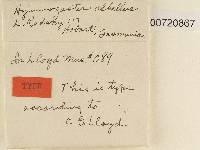 Hymenogaster albellus
L. Rodway
Hobart, Tasmania
00720867
Lloyd Mus # 089
TYPE
This is type
according to
C. G. Lloyd.